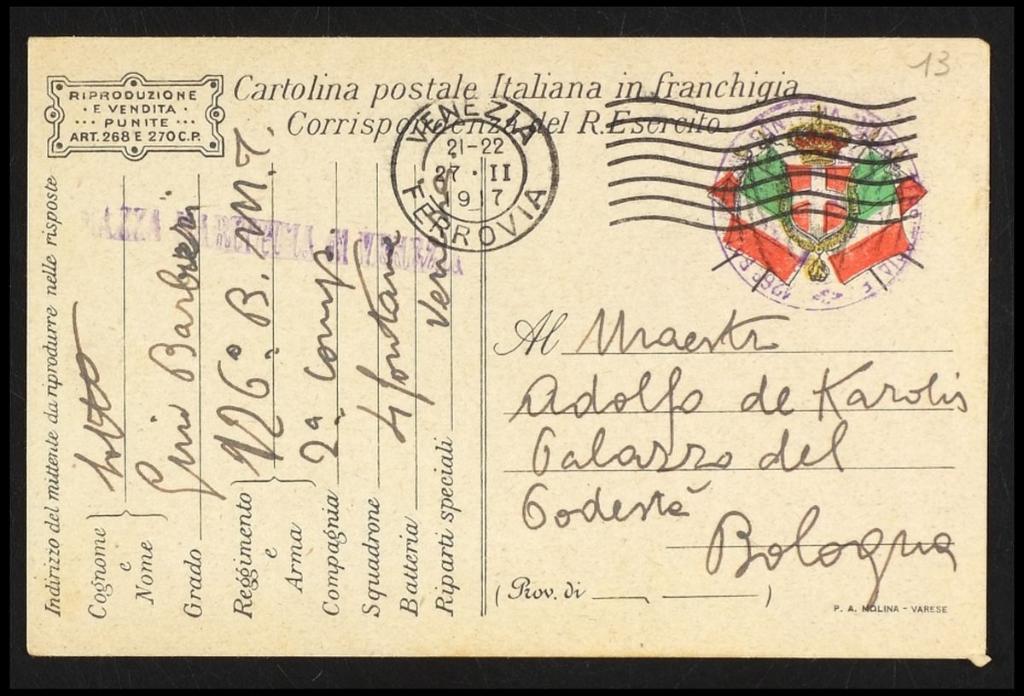 13
RIPRODUZIONE
· E VENDITA ·
··· PUNITE ···
ART. 268 E 270 C.P.
Cartolina postale Italiana in franchigia
Corrispondenza del R. Esercito
VENEZIA
21-22
27 · II
1917
FERROVIA
Al Maestro
Adolfo de Karolis
Palazzo del
Podestà
Bologna
(Prov. di )
P. A. MOLINA - VARESE
Indirizzo del mittente da riprodurre nelle risposte
Cognome
e
Nome
Gino Barbieri
Grado
Reggimento 126° B. M. T.
e
Arma
Compagnia 2ª Comp
Squadrone
Batteria 4 Fontane
Riparti speciali